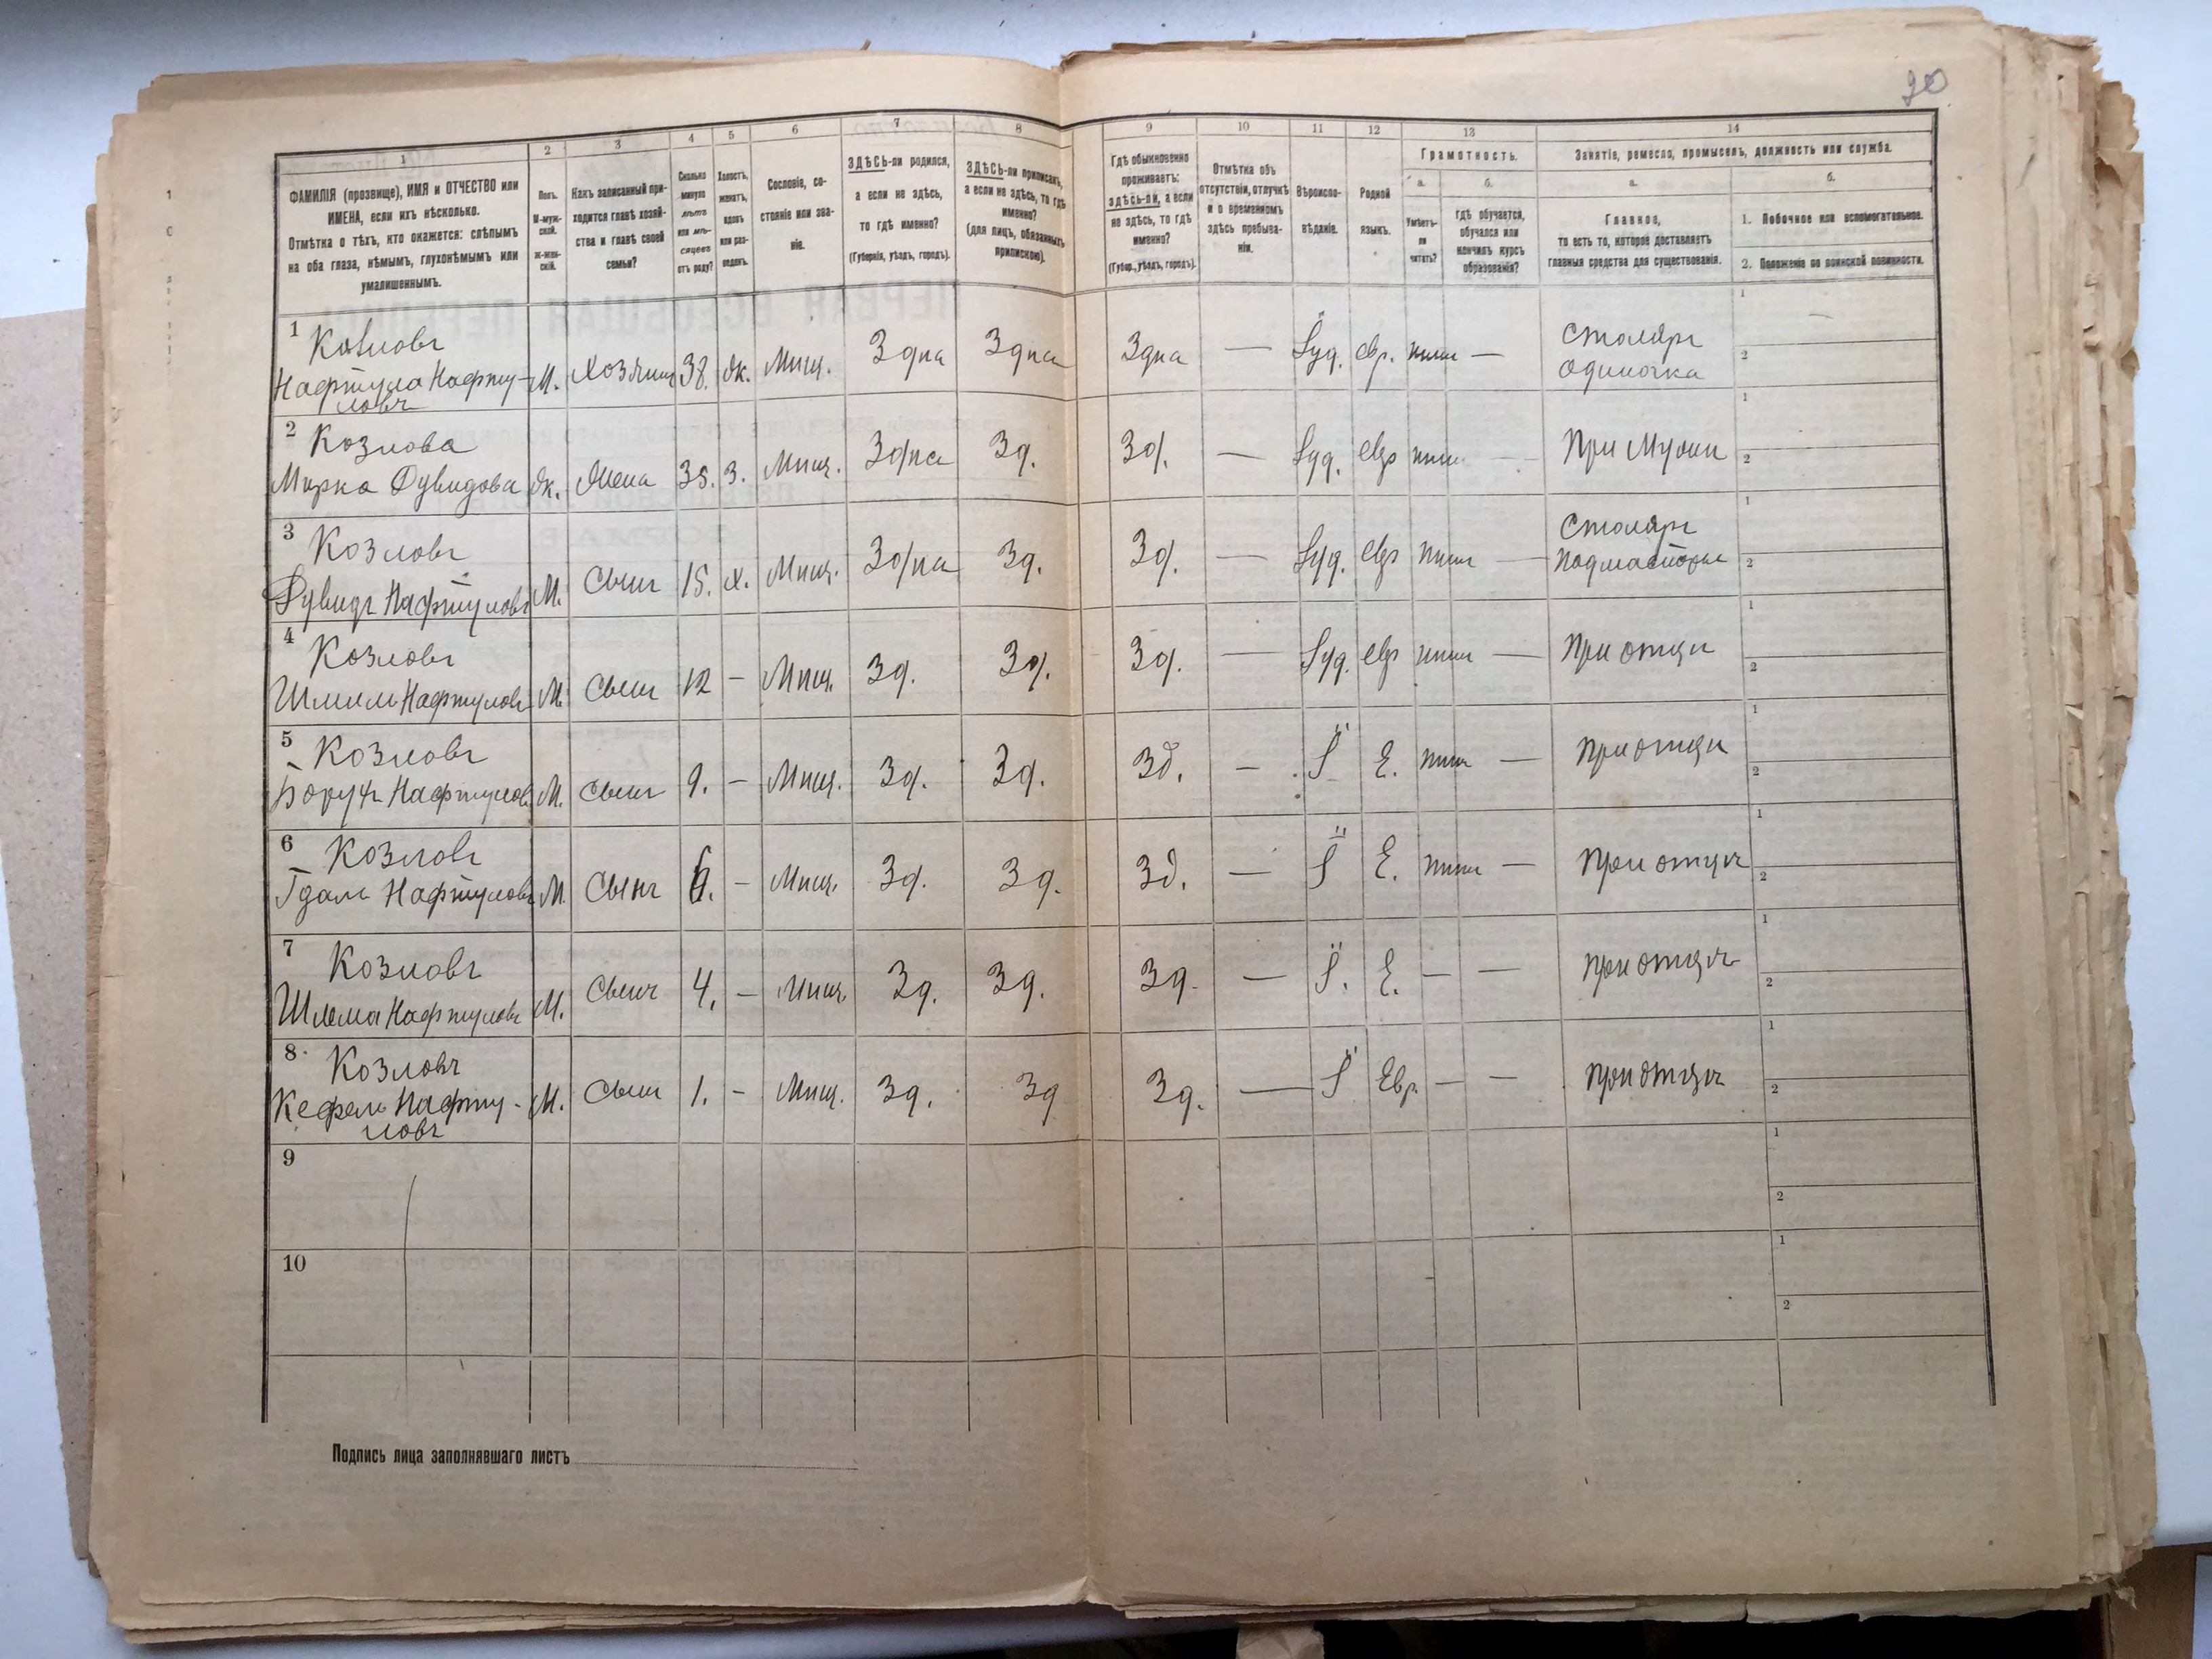 20
1 2 3 4 5 6 7 8 9 10 11 12 13 14
ФАМИЛІЯ (прозвище), ИМЯ и ОТЧЕСТВО или
ИМЕНА, если ихъ нѣсколько.
Отмѣтка о тѣхъ, кто окажется: слѣпымъ
на оба глаза, нѣмымъ, глухонѣмымъ или
умалишеннымъ.
Полъ.
М-муж-
ской.
Ж-жен-
скій.
Какъ записанный при-
ходится главѣ хозяй-
ства и главѣ своей
семьи?
Сколько
минуло
лѣтъ
или мѣ-
сяцевъ
отъ роду?
Холостъ,
женатъ,
вдовъ
или раз-
веденъ.
Сословіе, со-
стояніе или зва-
ніе.
ЗДѢСЬ-ли родился,
а если не здѣсь,
то гдѣ именно?
(Губернія, уѣздъ, городъ).
ЗДѢСЬ-ли приписанъ,
а если не здѣсь, то гдѣ
именно?
(для лицъ, обязанныхъ
припискою).
Гдѣ обыкновенно
проживаетъ:
здѣсь-ли, а если
не здѣсь, то гдѣ
именно?
(Губер., уѣздъ, городъ).
Отмѣтка объ
отсутствіи, отлучкѣ
и о временномъ
здѣсь пребыва-
ніи.
Вѣроиспо-
вѣданіе.
Родной
языкъ.
Грамотность.
а. б.
Умѣетъ-
ли
читать?
гдѣ обучается,
обучался или
кончилъ курсъ
образованія?
Занятіе, ремесло, промыселъ, должность или служба.
а. б.
Главное,
то есть то, которое доставляетъ
главныя средства для существованія.
1. Побочное или вспомогательное.
2. Положеніе по воинской повинности.
1 Козловъ
Нафтула Нафту-
ловъ М. Хозяинъ 38. Ж. Мищ. Здпа Здпа Здпа — Іуд. евр. — Столяръ
одиночка
1
2
2 Козлова
Мирка Дувидова Ж. Жена 35. З. Мищ. Зд. Зд. — Іуд. евр При Мужи
1
2
3 Козловъ
Дувидъ Нафтуловъ М. Сынъ 15. Х. Мищ. Зд. Зд. — Іуд. евр — Столяръ
подмастерье
1
2
4 Козловъ
Шмиль Нафтуловъ М. Сынъ 12 — Мищ. Зд. Зд. Зд. — Іуд. евр — При отци
1
2
5 Козловъ
Борухъ Нафтулов М. Сынъ 9. — Мищ. Зд. Зд. Зд. — І Е. — При отци
1
2
6 Козловъ
Гдаль Нафтуловъ М. Сынъ 6. — Мищ. Зд. Зд. Зд. — І Е. — При отци
1
2
7 Козловъ
Шлема Нафтуловъ М. Сынъ 4. — Мищ. Зд. Зд. Зд. — І. Е. — — При отци
1
2
8 Козловъ
Кефель Нафту-
ловъ М. Сынъ 1. — Мищ. Зд. Зд Зд. — І Евр. — — При отци
1
2
9
1
2
10
1
2
Подпись лица заполнявшаго листъ